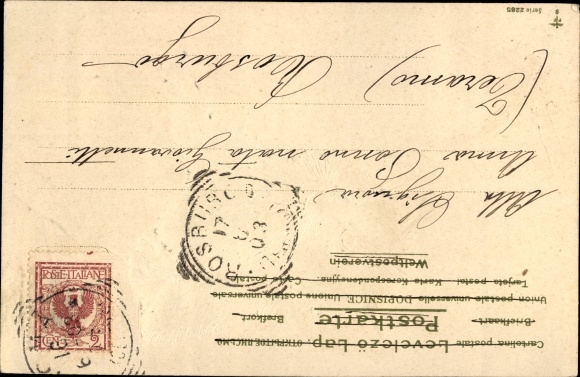 Cartolina postale. Levelező Lap. ОТКРЫТОЕ ПИСЬМО
Briefkaart. Postkarte Brefkort.
Union postale universelle. DOPISNICE Unione postale universale.
Tarjeta postal. Karta Korespondencyjna. Carte postale.
Weltpostverein
POSTE ITALIANE
2
ROSBURGO
17
03
Alla Signora
Anna Sanno nata Giovannelli
(Teramo) Rosburgo
Serie 2285